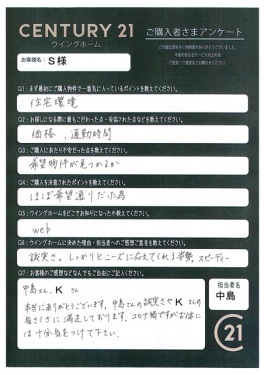 CENTURY 21
ウイングホーム
ご購入者さまアンケート
お客様名：
S様
Q1：まず最初にご購入物件で一番気に入っているポイントを教えてください。
住宅環境
Q2：お探しになる際に最もこだわった点・妥協された点などを教えてください。
価格、通勤時間
Q3：ご購入にあたり不安だった点を教えてください。
希望物件が見つかるか
Q4：ご購入を決意されたポイントを教えてください。
ほぼ希望通りだった為
Q5：ウイングホームをどこでお知りになったか教えてください。
web
Q6：ウイングホームに決めた理由・担当者へのご感想ご意見を教えてください。
誠実さ。しっかりとニーズに応えてくれる姿勢、スピーディー
Q7：お客様のご感想などなんでもご自由にご記入ください。
中島さん、K さん
本当にありがとうございます。中島さんの誠実さ K さんの
気さくさに満足しております。コロナ禍ですがお体に
は十分気をつけて下さい。
担当者名
中島
C21